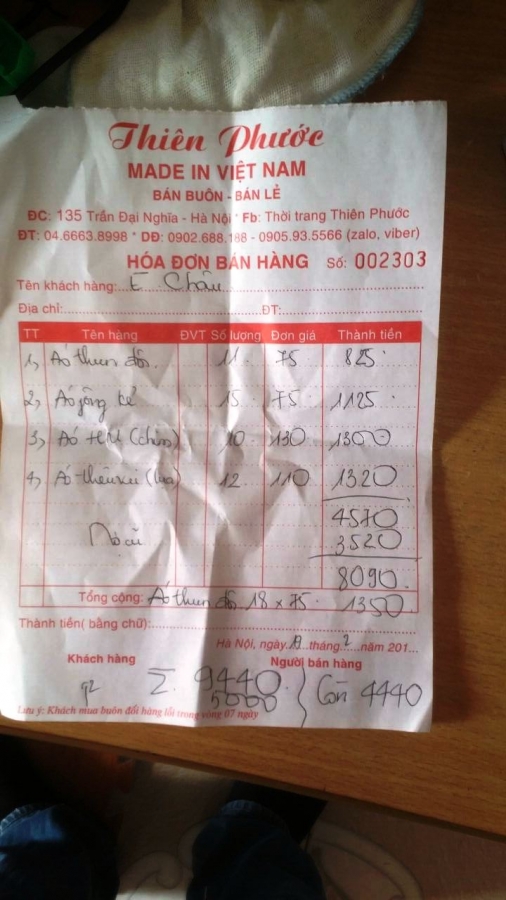 Thiên Phước
MADE IN VIỆT NAM
BÁN BUÔN - BÁN LẺ
ĐC: 135 Trần Đại Nghĩa - Hà Nội * Fb: Thời trang Thiên Phước
ĐT: 04.6663.8998 * DĐ: 0902.688.186 - 0905.93.5566 (zalo, viber)
HÓA ĐƠN BÁN HÀNG Số: 002303
Tên khách hàng: E Châu
Địa chỉ: ĐT:
TT Tên hàng ĐVT Số lượng Đơn giá Thành tiền
1, Áo thun 11 75 825
2, Áo kẻ 15 75 1125
3, Áo 10 130 1300
4, Áo 12 110 1320
4570
Nợ cũ 3520
8090
Tổng cộng: Áo thun 18 x 75 1350
Thành tiền( bằng chữ):
Hà Nội, ngày 19 tháng 2 năm 201...
Khách hàng Người bán hàng
Σ 9440
5000 Còn 4440
Lưu ý: Khách mua buôn đổi hàng lỗi trong vòng 07 ngày